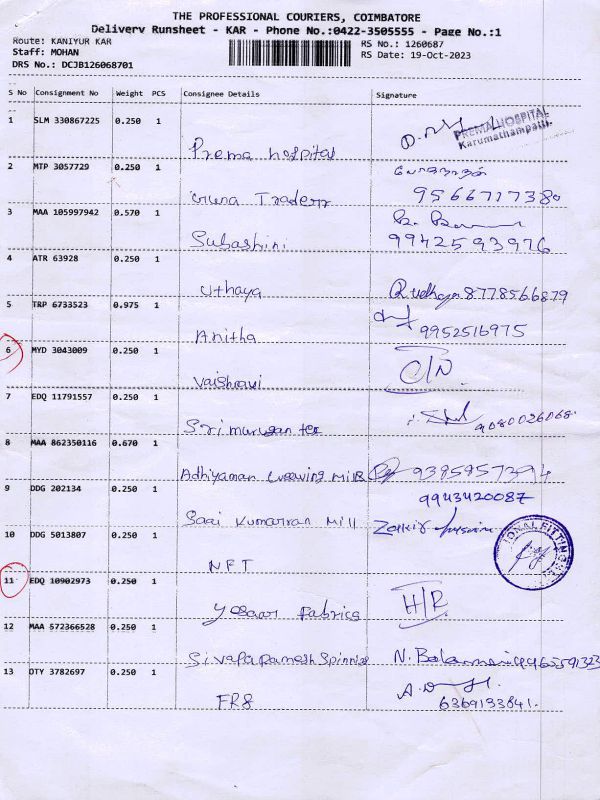 THE PROFESSIONAL COURIERS, COIMBATORE
Delivery Runsheet - KAR - Phone No.:0422-3505555 - Page No.:1
Route: KANIYUR KAR
RS No.: 1260687
Staff: MOHAN
RS Date: 19-Oct-2023
DRS No.: DCJB126068701
S No Consignment No Weight PCS Consignee Details Signature
1 SLM 330867225 0.250 1 Prema hospital PREMA HOSPITAL Karumathampatti.
2 MTP 3057729 0.250 1 Traders 9566717380
3 MAA 105997942 0.570 1 Subashini 9942593976
4 ATR 63928 0.250 1 Uthaya 8778566879
5 TRP 6733523 0.975 1 Anitha 9952516975
6 MYD 3043009 0.250 1 Vaishnavi C/N
7 EDQ 11791557 0.250 1 Sri murugan tex 9080026068.
8 MAA 862350116 0.670 1 Adhiyaman weaving mills
9 DDG 202134 0.250 1 Saai Kumarran Mill 9943420087
10 DDG 5013807 0.250 1 NFT
11 EDQ 10902973 0.250 1 fabrics H/R
12 MAA 572366528 0.250 1
13 OTY 3782697 0.250 1 FR8 6369133841.